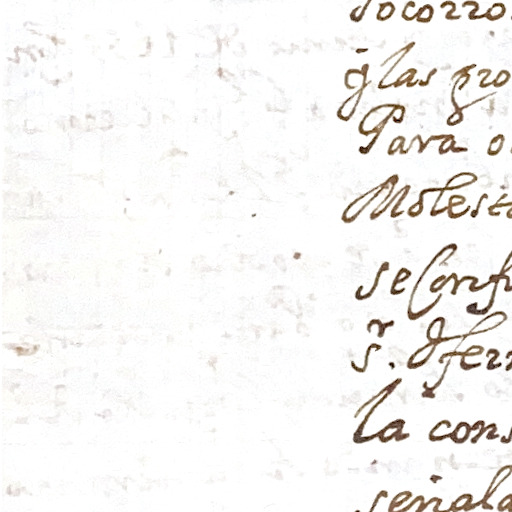 socorro
q̃ las pro
Para o
Molest
se Conf
s.r d fer
la cons
señala